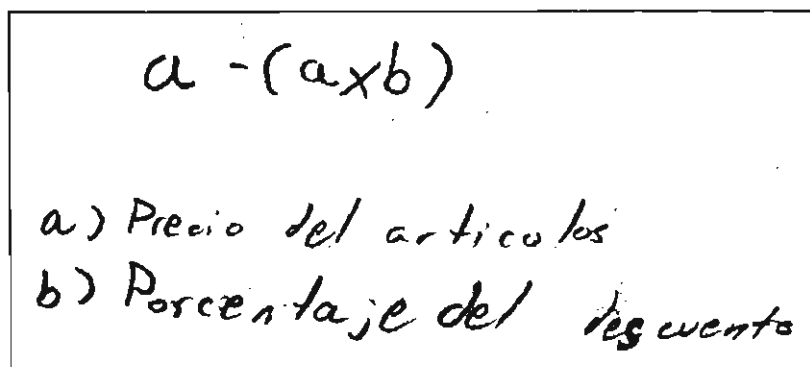 a - (a x b)
a) Precio del articulos
b) Porcentaje del descuento